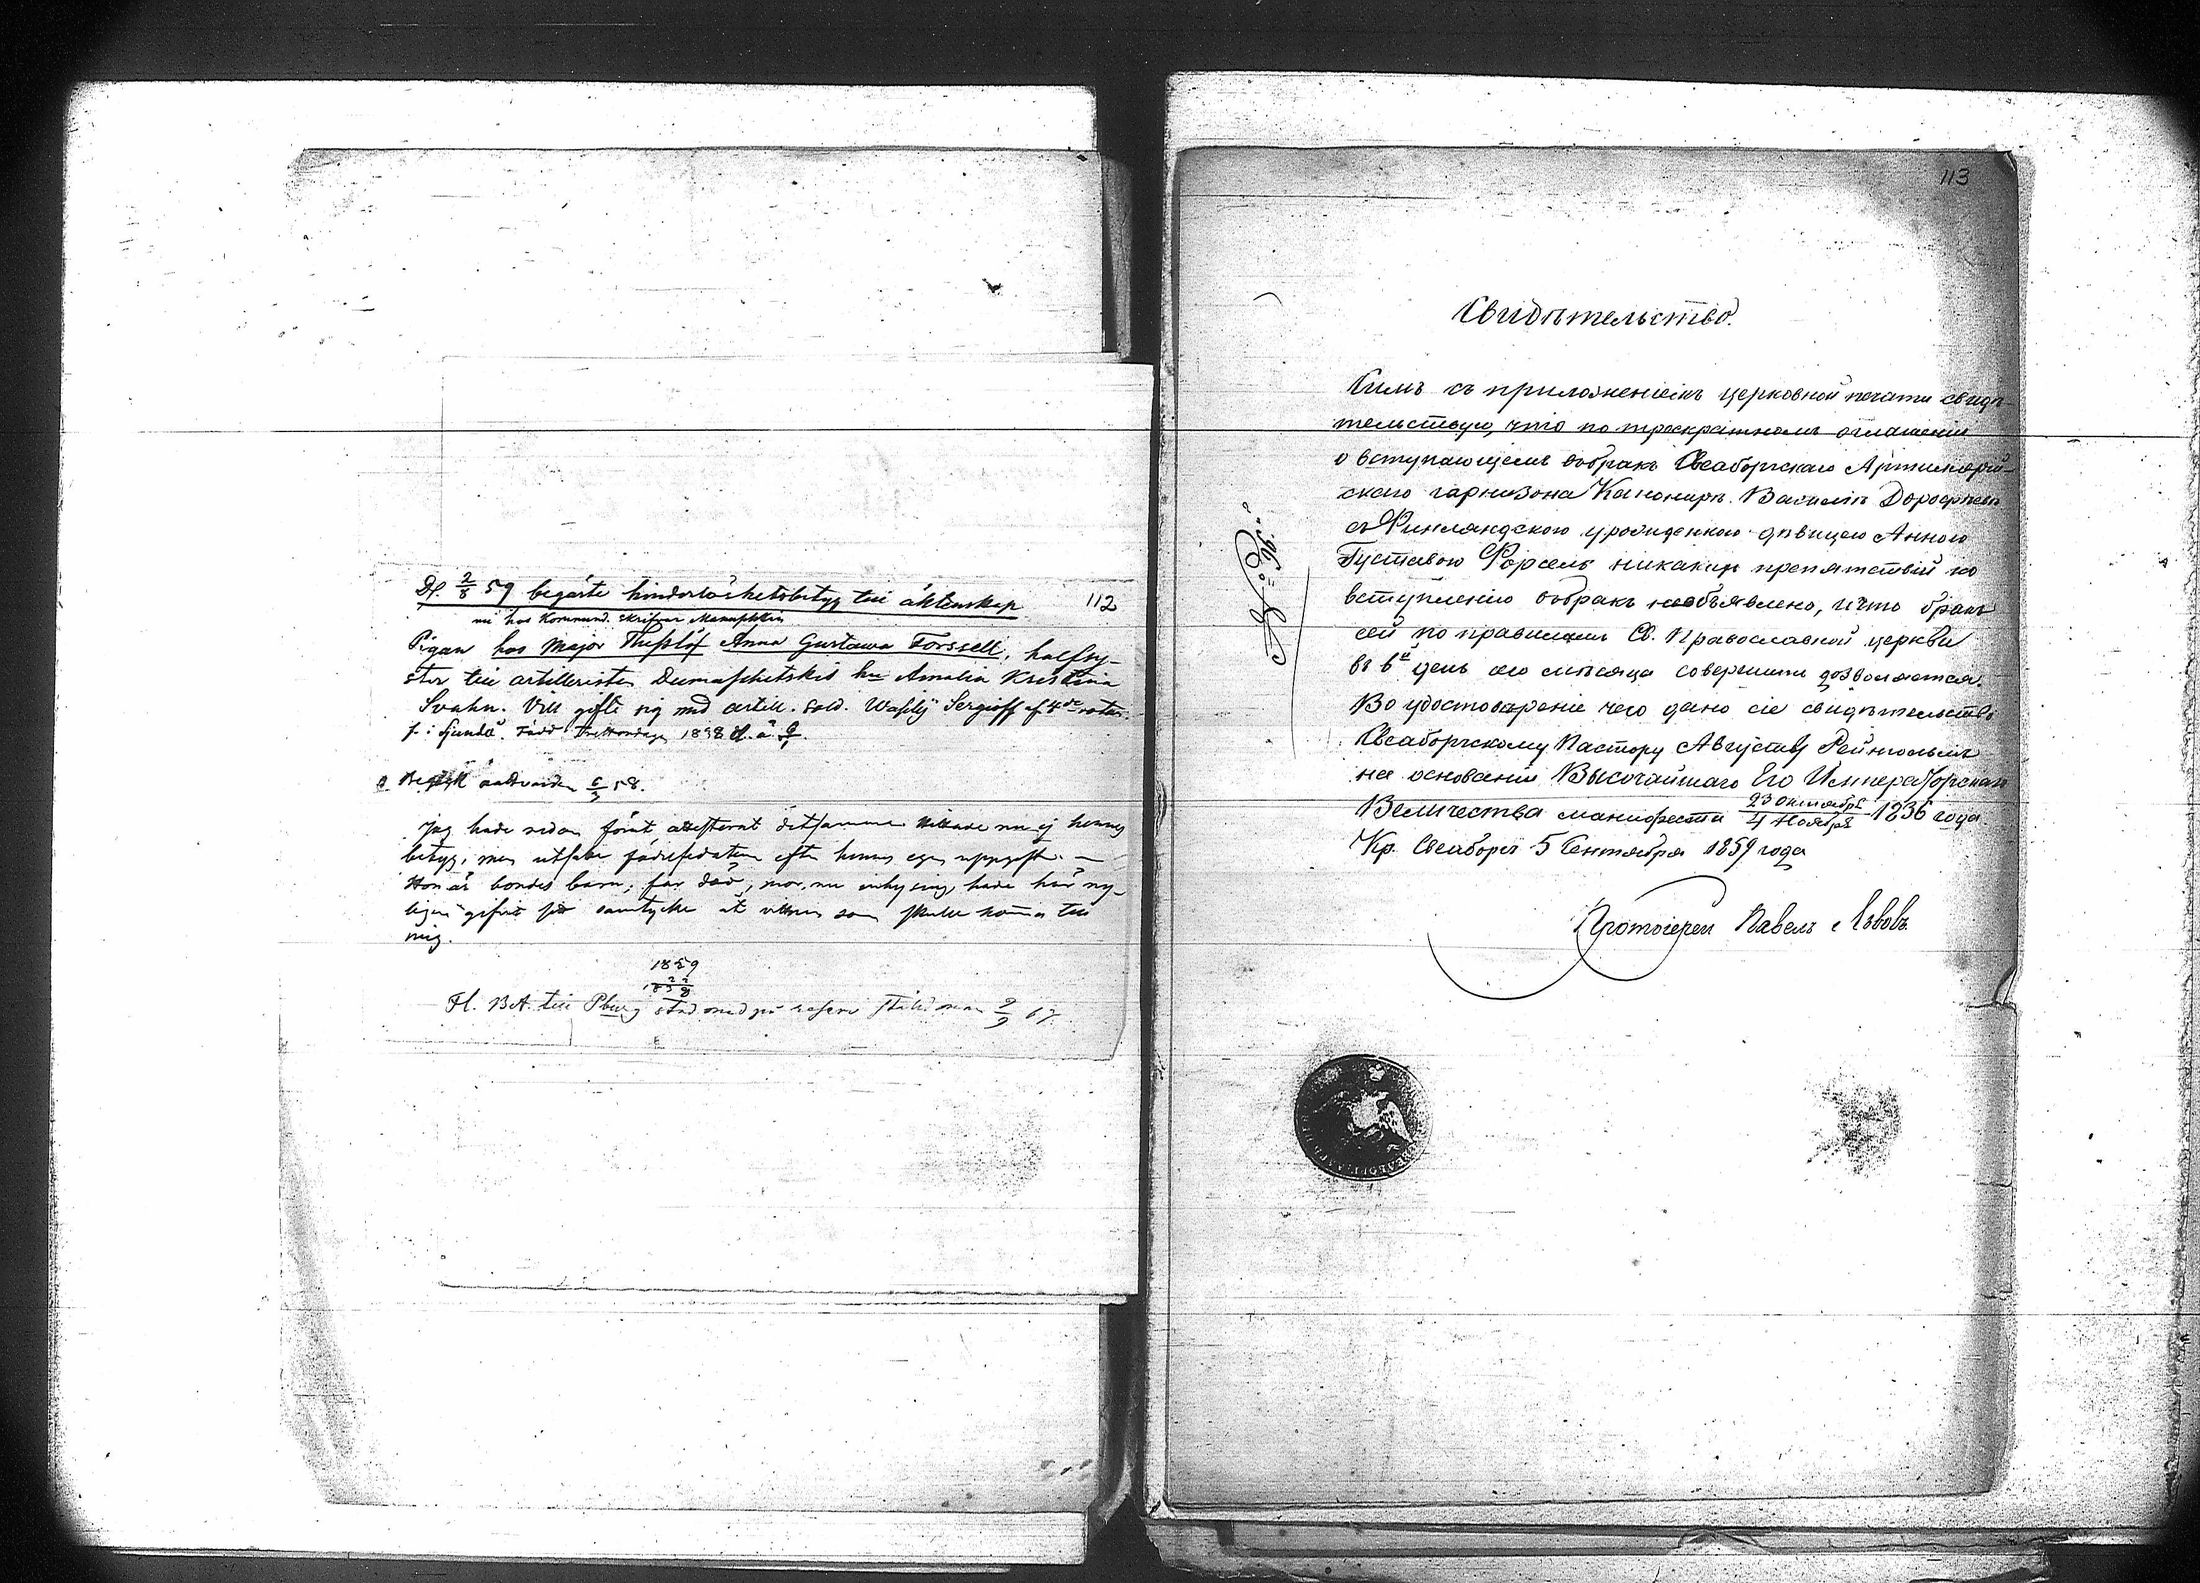 112
D. 2/8 59 begärte hinderlöshetsbetyg till äktenskap
nu hos Kommend. skrifvar
Pigan hos Major Thesslöf Anna Gustawa Forssell, halfsy-
ster till artilleristen Dumaschetskis hu Amalia Kristina
Svahn. Vill gifta sig med artill. sold. Wasilij Sergioff af 4de rotan.
f. i Sjundå. född Trettondag 1838
6/3 58.
Jag hade redan förut attesterat detsamma nu ej hennes
betyg, men utsatte födelsedatum efter hennes egen uppgift. —
Hon är bondes barn; far död, mor nu inhysing, hade här ny-
ligen gifvit sitt samtycke åt vittnen som skulle komma till
mig.
1859
Fl. B.A. till Pburg stad med på resan 2/9 67
113
Свидѣтельство.
Симъ съ приложеніемъ церковной печати свидѣ-
тельствую, что по троекратномъ оглашеніи
о вступающемъ вобракъ Свеаборгскаго Артиллерій-
скаго гарнизона Канонирѣ Василіѣ Дорофѣевѣ
съ Финляндскою урожденкою дѣвицею Анною
Густавою Форсель никакихъ препятствій ко
вступленію вобракъ необъявлено, и что бракъ
сей по правиламъ Св. Православной церкви
въ 6й день сего мѣсяца совершить дозволяется.
Во удостовѣреніе чего дано сіе свидѣтельство
Свеаборгскому Пастору Августу Рейнгольмъ
на основаніи Высочайшаго Его Императорскаго
Величества манифеста 23 октября / 4 Ноября 1836 года.
Кр. Свеаборгъ 5 Сентября 1859 года
Протоіерей Павелъ Львовъ.
№ 96.